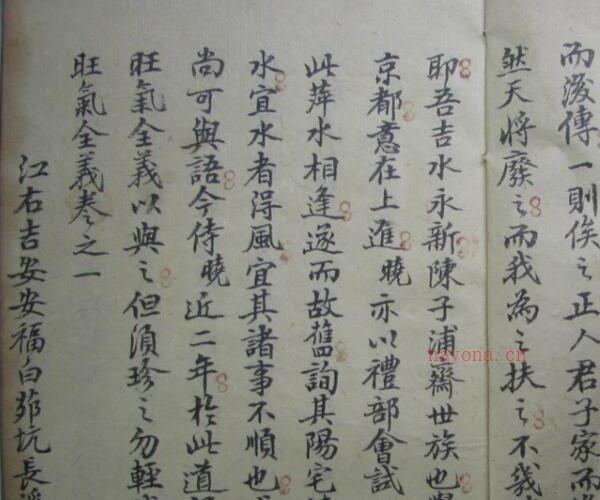 而後傳一則俟之正人君子家而
然天將廢之而我為之扶之不幾
耶吾吉水永新陳子浦齋世族也
京都意在上進曉亦以禮部會試
此萍水相逢遂而故舊詢其陽宅
水宜水者得風宜其諸事不順也
尚可與語今侍曉近二年於此道
旺氣全義以與之但須珍之勿輕
旺氣全義卷之一
江右吉安安福白茆坑長
nayona.cn